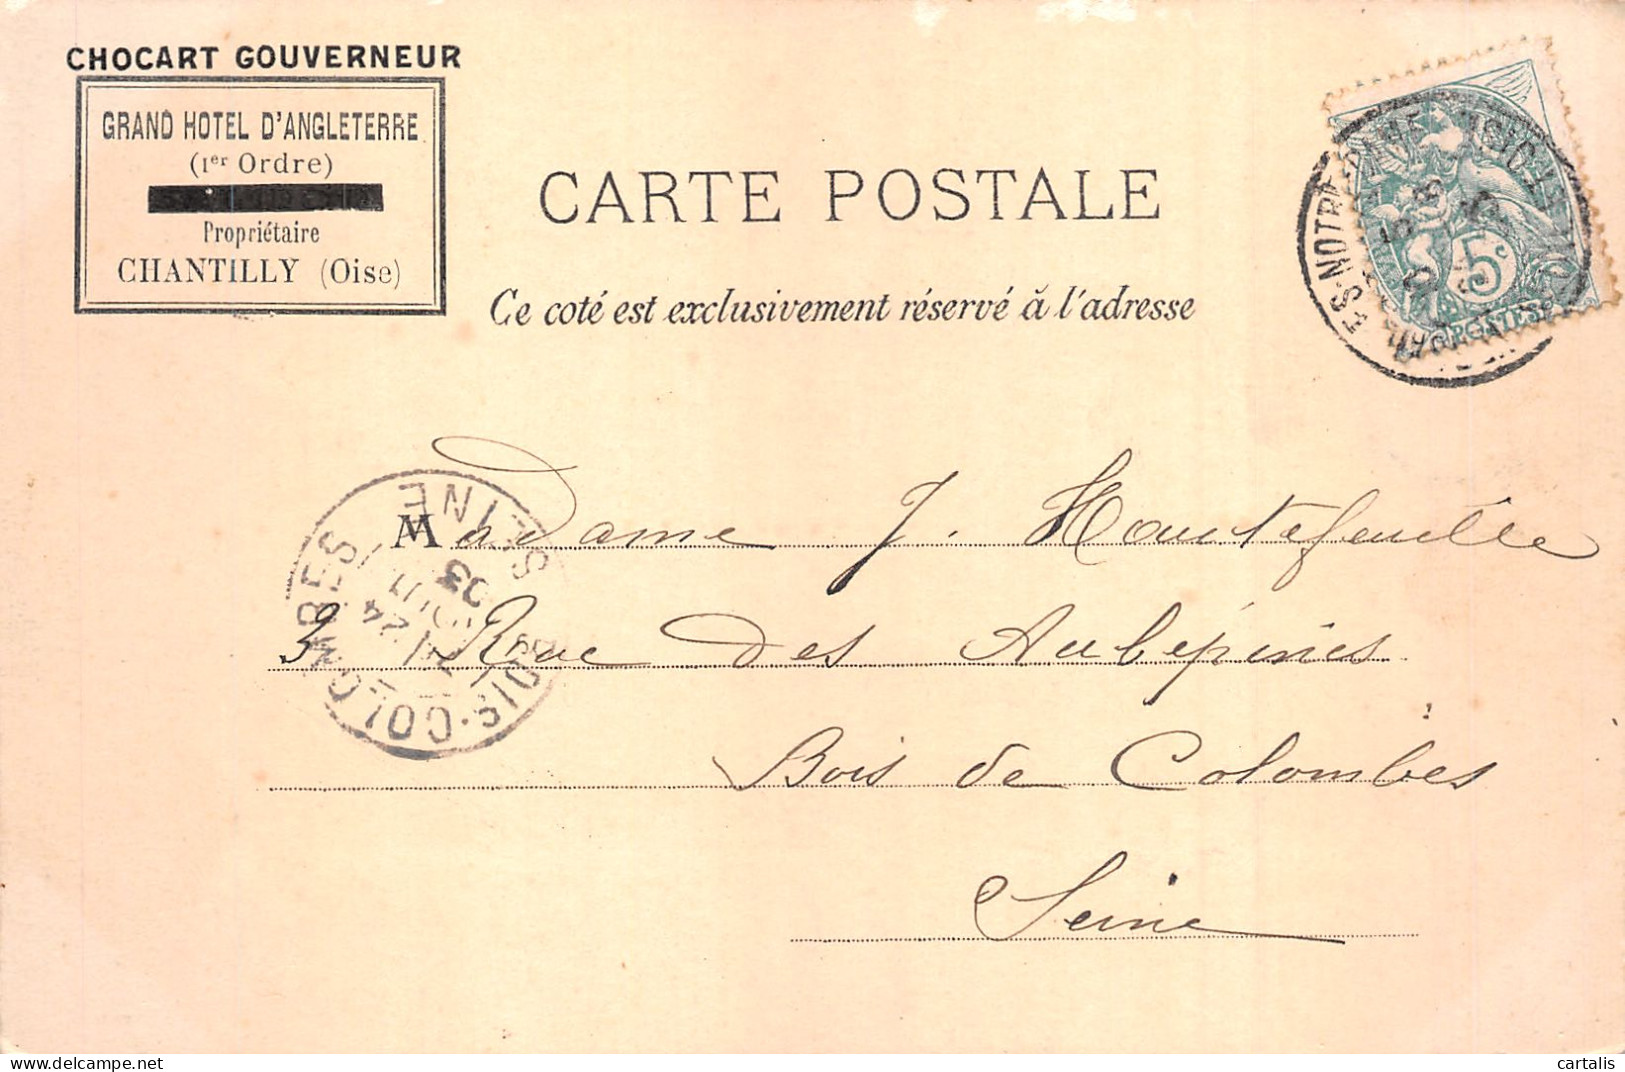 CHOCART GOUVERNEUR
GRAND HOTEL D'ANGLETERRE
(1er Ordre)
Propriétaire
CHANTILLY (Oise)
CARTE POSTALE
Ce coté est exclusivement réservé à l'adresse
5c
POSTES
NOTRE DAME
Madame J. Hautefeuille
3 Rue des Aubépines
Bois de Colombes
Seine
BOIS-COLOMBES
SEINE
24
03
cartalis